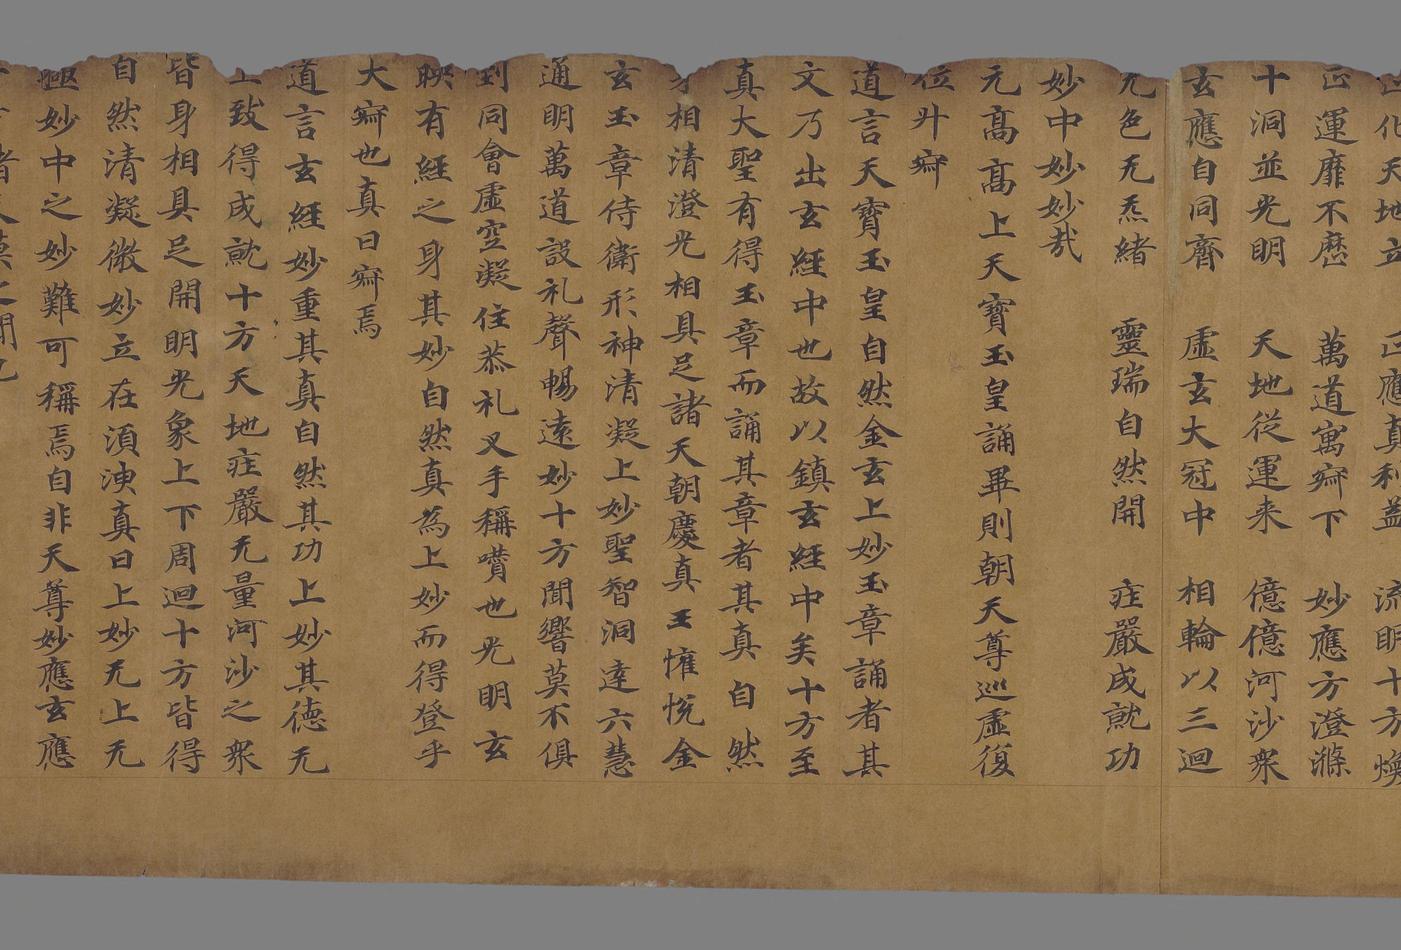 化天地立 正應真利益 流明十方煥
正運靡不歷 萬道寓寂下 妙應方澄滌
十洞並光明 天地從運来 億億河沙衆
玄應自同齊 虛玄大冠中 相輪以三迴
无色无炁緒 靈瑞自然開 疘嚴成就功
妙中妙妙哉
元高高上天寶玉皇誦畢則朝天尊巡虛復
位升寂
道言天寶玉皇自然金玄上妙玉章誦者其
文乃出玄經中也故以鎮玄經中矣十方至
真大聖有得玉章而誦其章者其真自然
相清澄光相具足諸天朝慶真王懽悅金
玄玉章侍衛形神清凝上妙聖智洞達六慧
通明萬道設礼聲暢遠妙十方聞響莫不俱
到同會虛空凝住恭礼叉手稱讚也光明玄
映有經之身其妙自然真為上妙而得登乎
大寂也真曰寂焉
道言玄經妙重其真自然其功上妙其德无
上致得成就十方天地疘嚴无量河沙之衆
皆身相具足開明光象上下周迴十方皆得
自然清凝微妙立在須臾真曰上妙无上无
極妙中之妙難可稱焉自非天尊妙應玄應